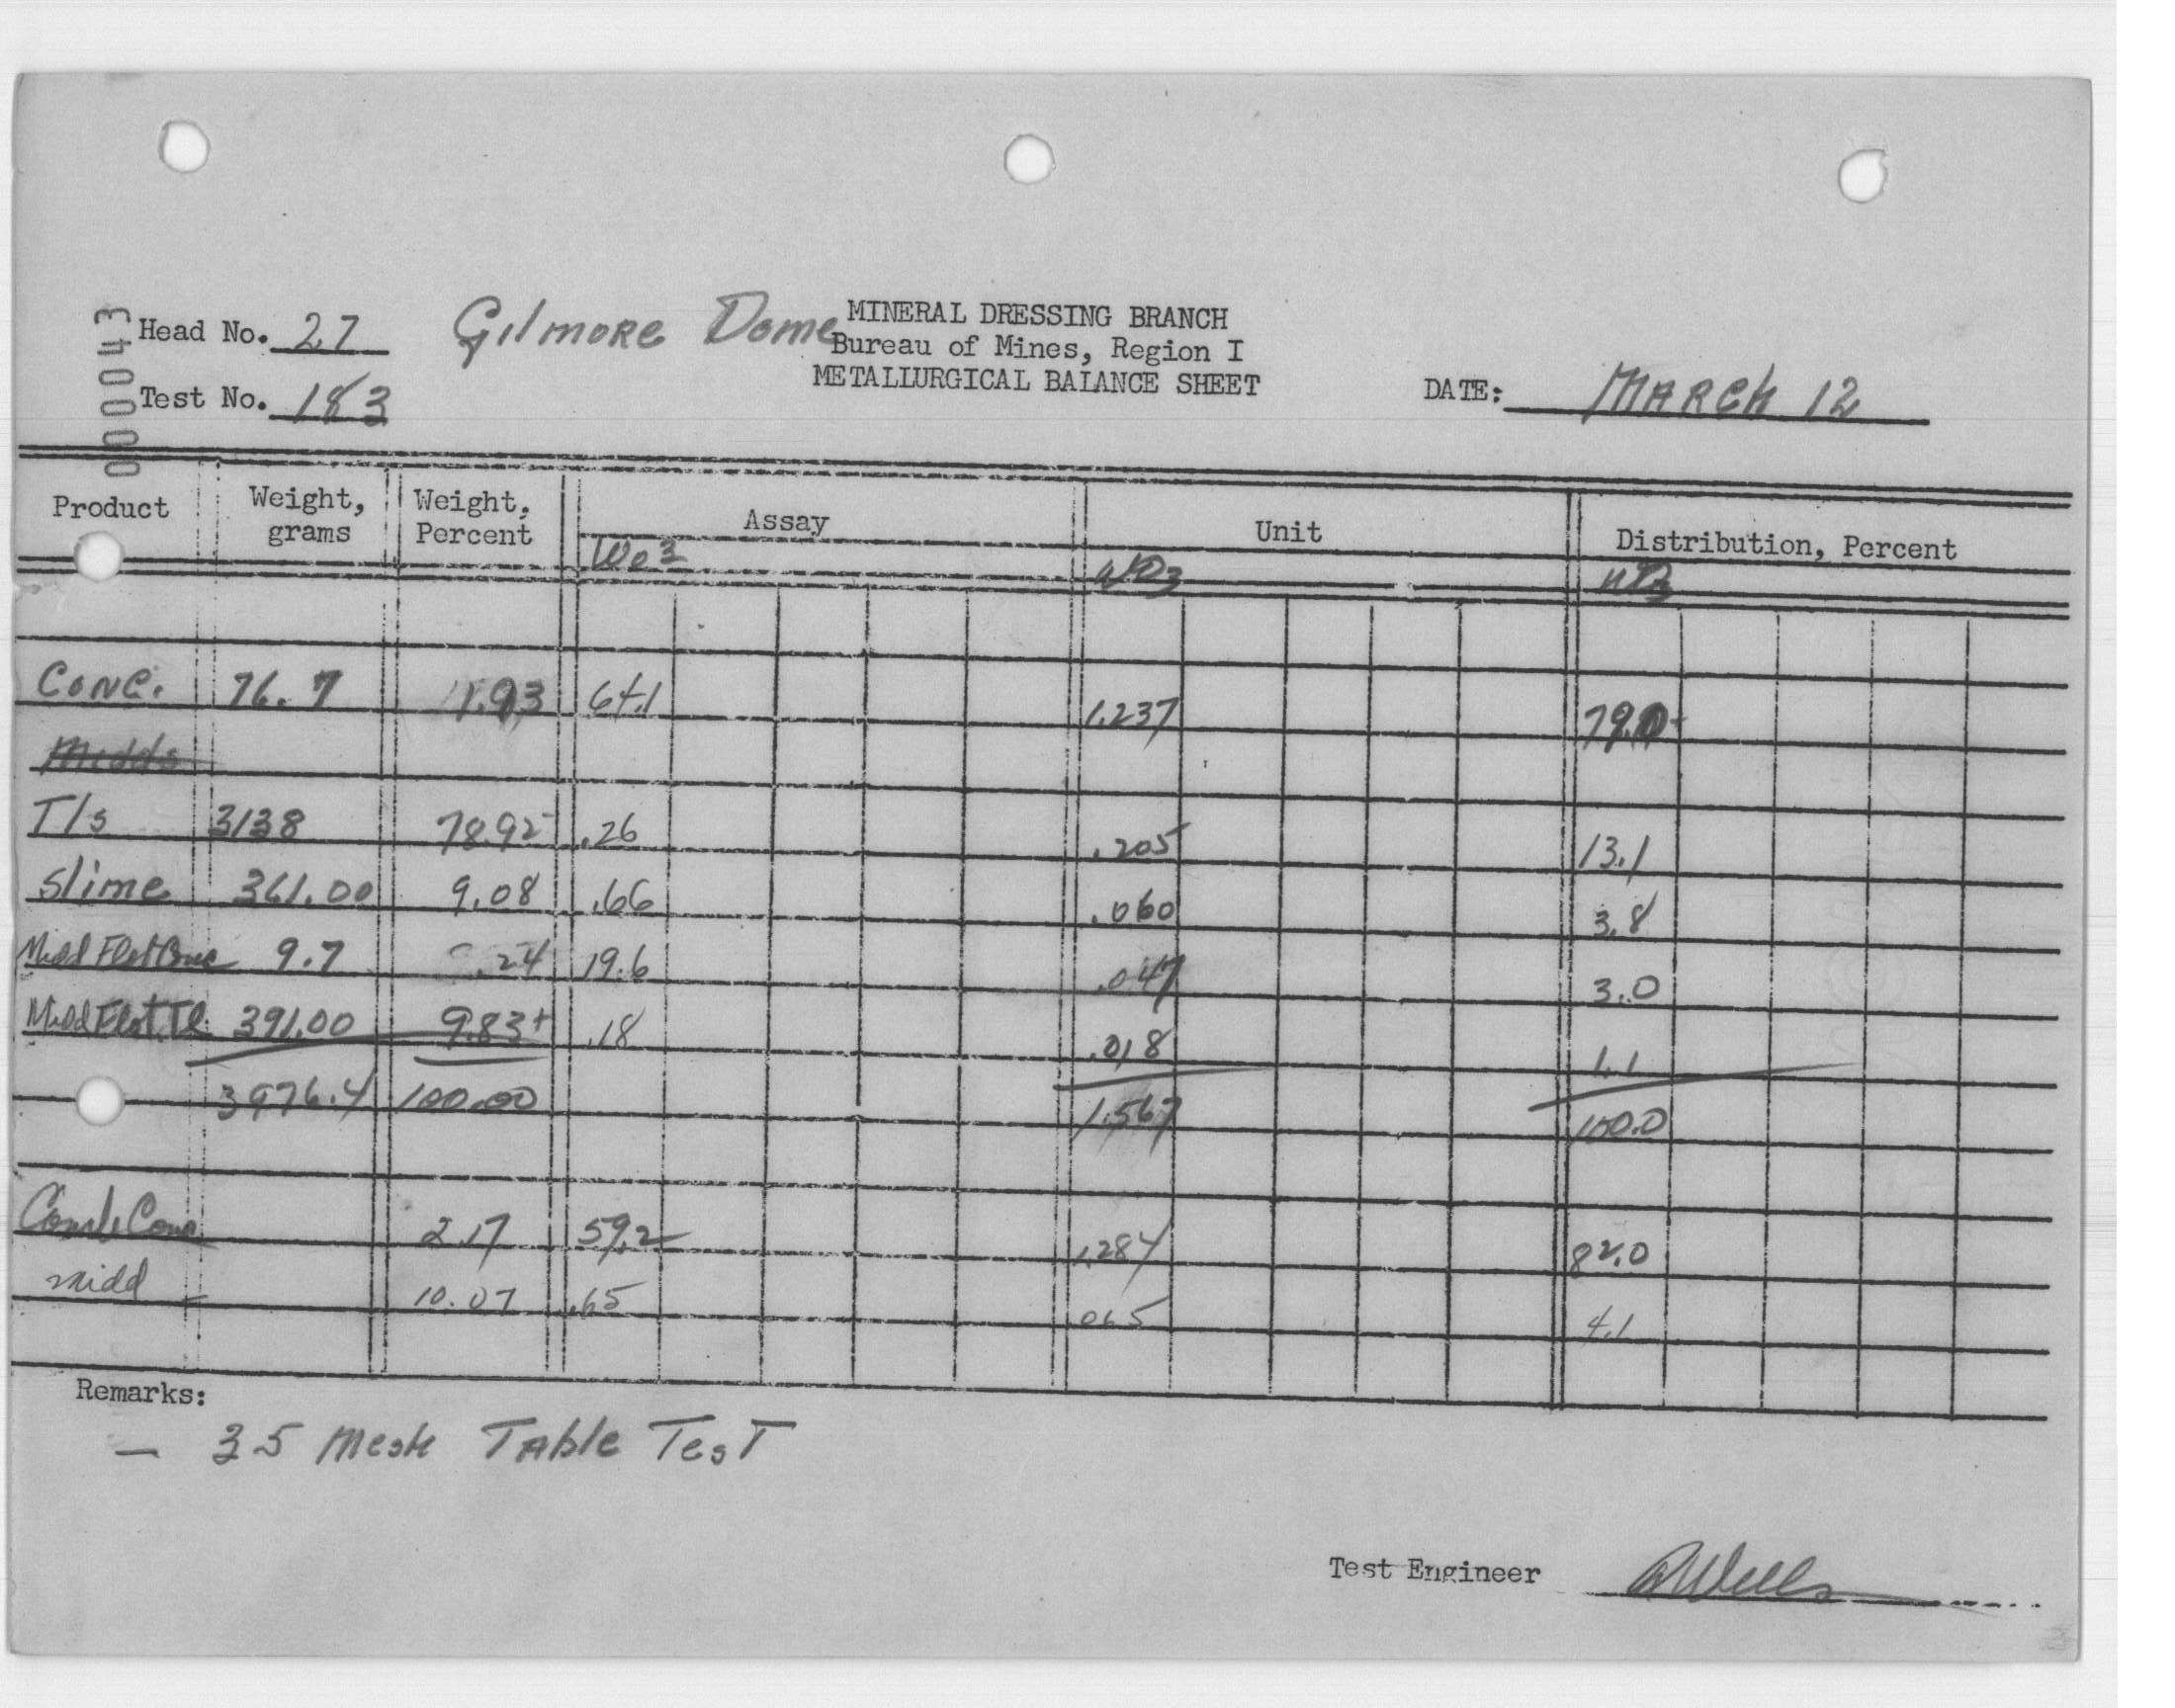 000043
Head No. 27 Gilmore Dome MINERAL DRESSING BRANCH
Bureau of Mines, Region I
Test No. 183 METALLURGICAL BALANCE SHEET DATE: MARCH 12
Product Weight, grams Weight, Percent Assay Unit Distribution, Percent
WO3 WO3 WO3
Conc. 76.7 1.93 64.1 1.237 79.0
Midds
Tls 3138 78.92 .26 .205 13.1
Slime 361.00 9.08 .66 .060 3.8
Midd Flot Conc 9.7 .24 19.6 .047 3.0
Midd Flot. Tl. 391.00 9.83+ .18 .018 1.1
3976.4 100.00 1.567 100.0
Comb Conc 2.17 59.2 1.284 82.0
Midd 10.07 .65 065 4.1
Remarks:
— 35 Mesh Table Test
Test Engineer RWells